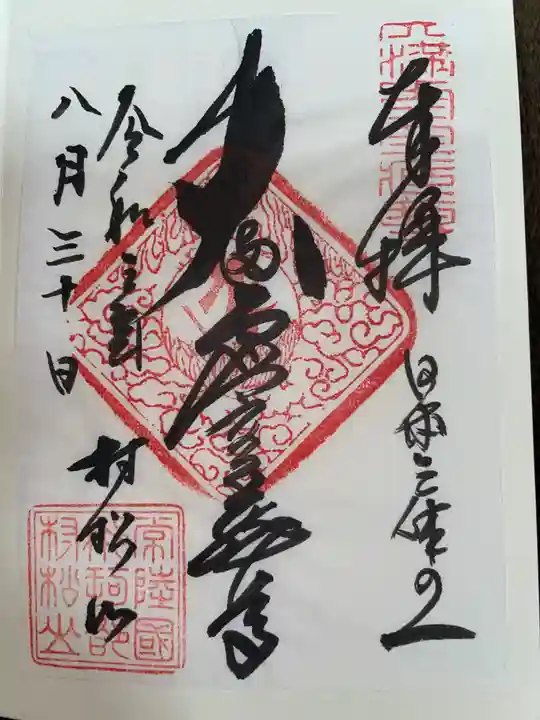 奉拝 日本三体の一
大満虚空蔵尊
令和三年
八月三十日
村松山
常陸國
那珂郡
村松山